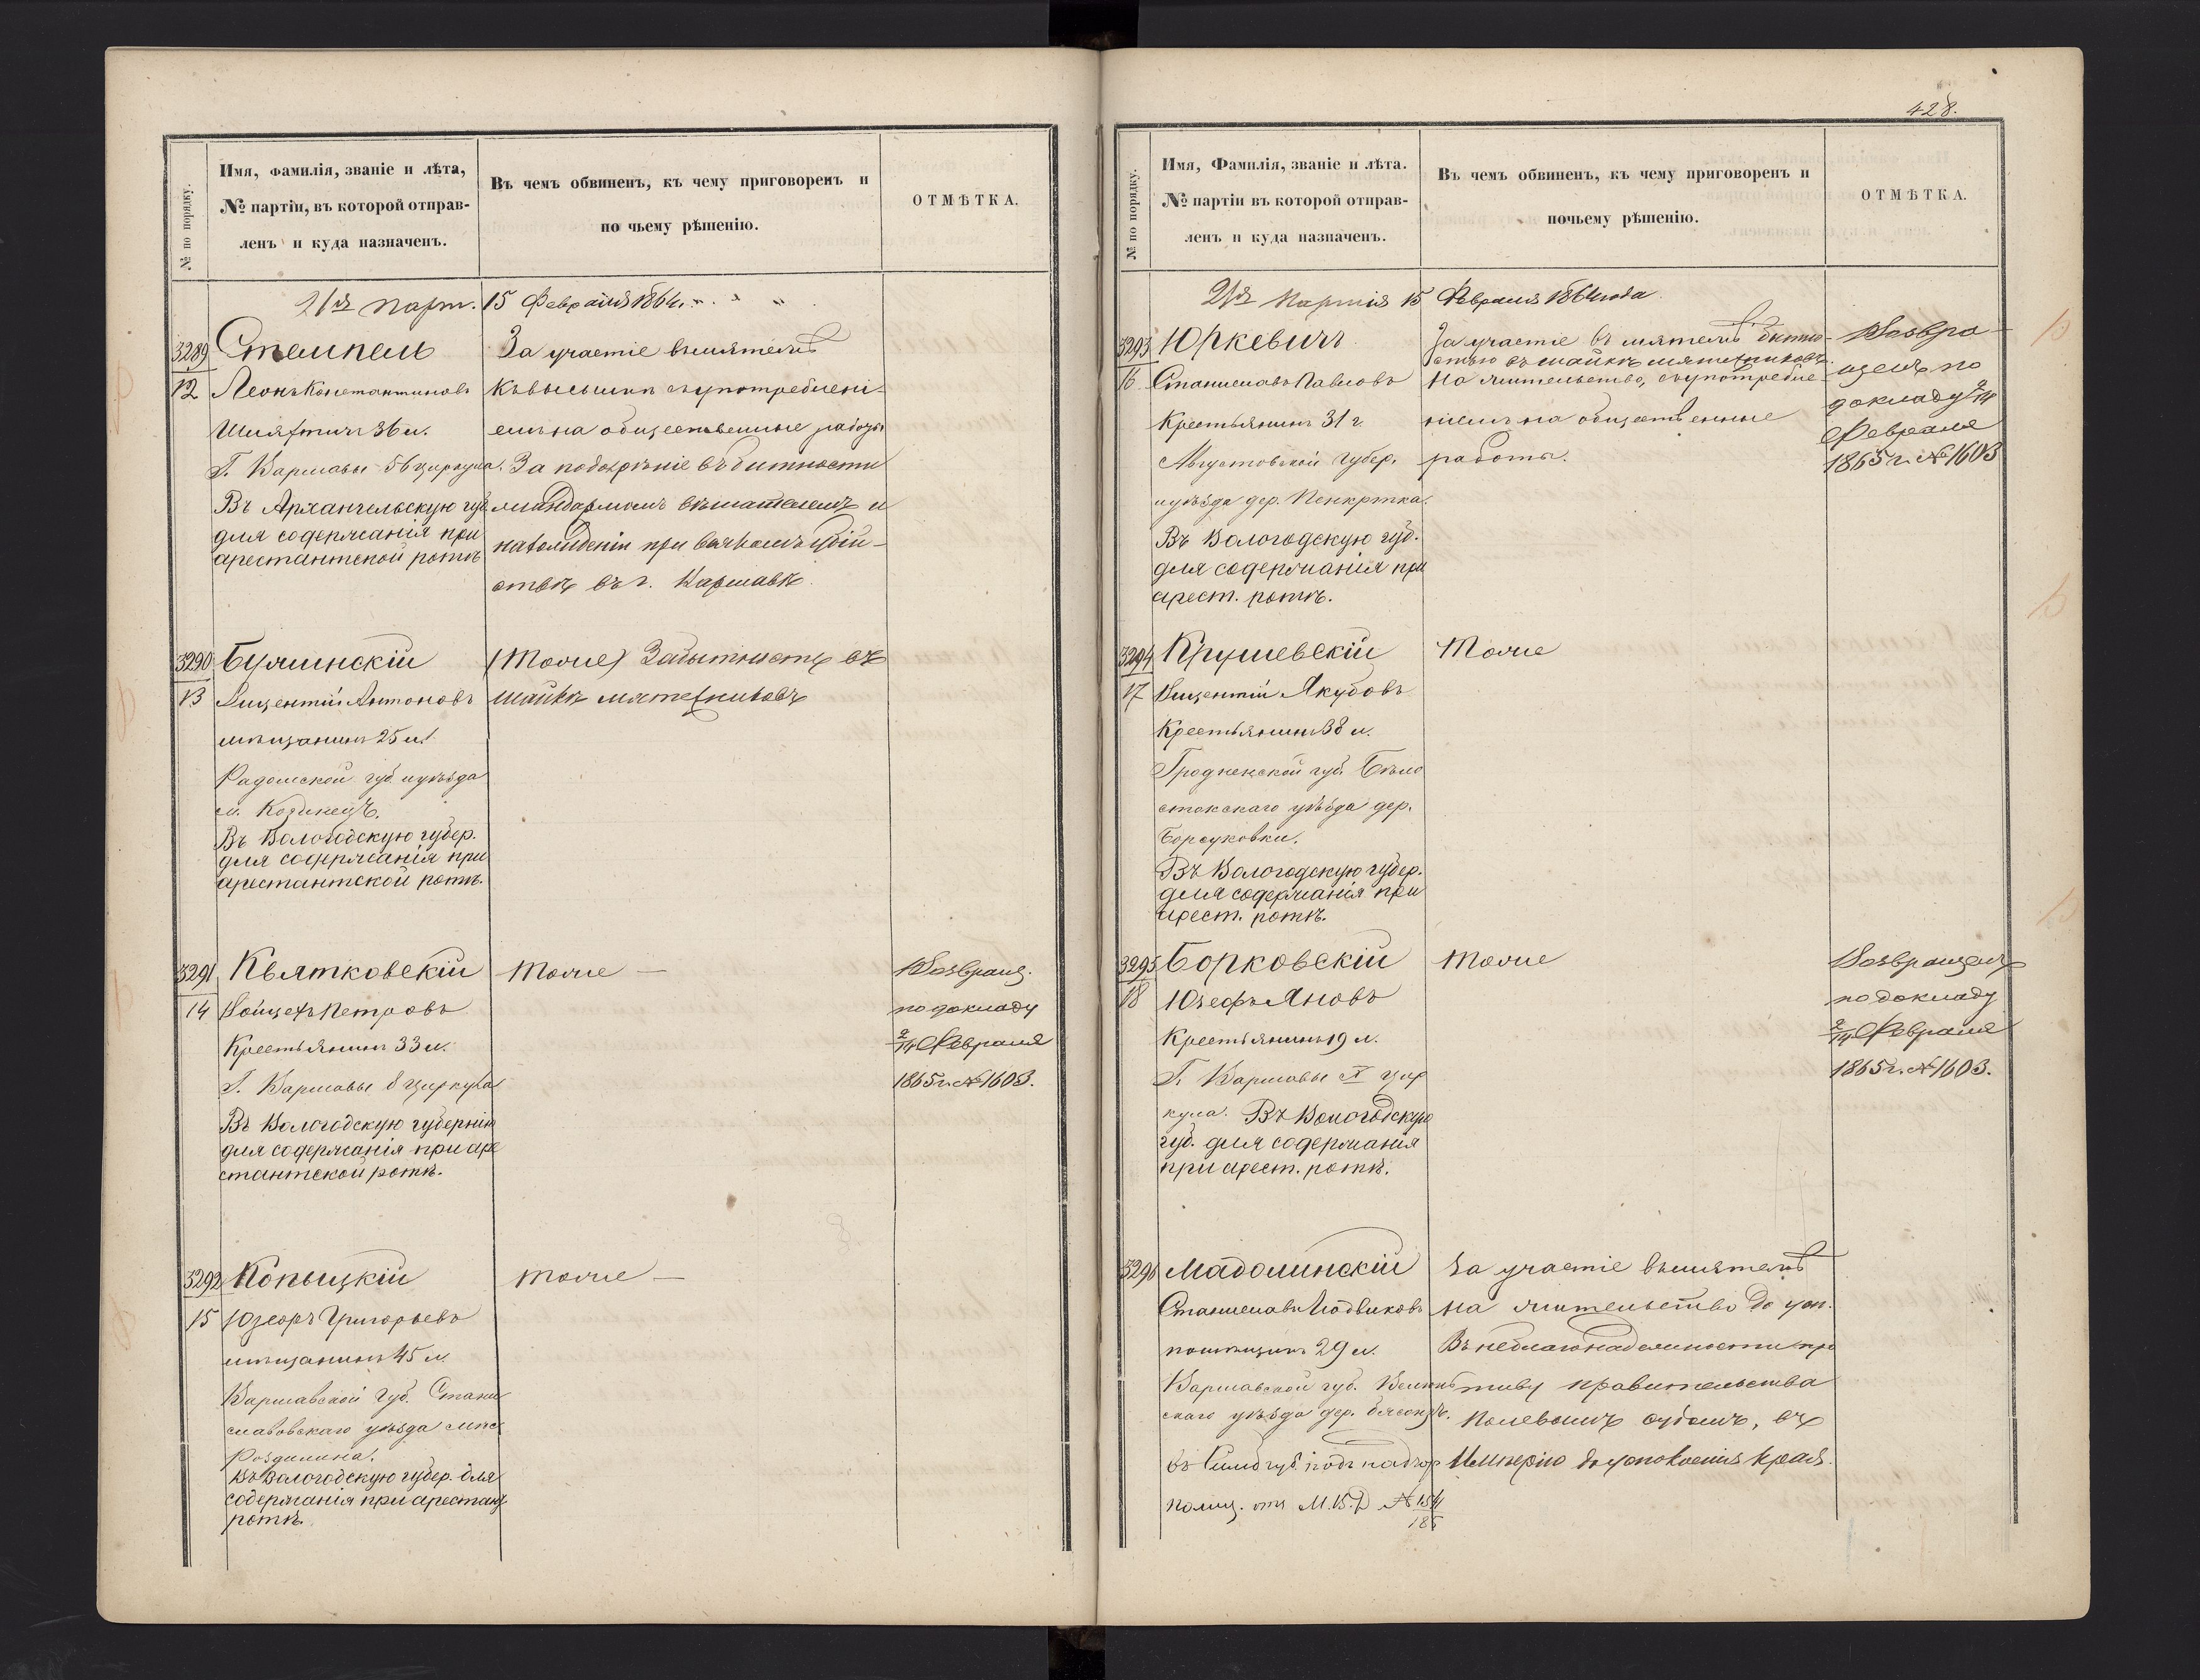 428.
№ по порядку.
Имя, фамилія, званіе и лѣта,
№ партіи, въ которой отправ-
ленъ и куда назначенъ.
Въ чемъ обвиненъ, къ чему приговоренъ и
по чьему рѣшенію.
ОТМѢТКА.
21я парт. 15 Февраля 1864 г.
3289
12
Стемпель
Леонъ Константиновъ
Шляхтичъ 36 л.
Г. Варшавы 5б циркула.
Въ Архангельскую губ.
для содержанія при
арестантской ротѣ
За участіе въ мятежѣ
къ высылкѣ съ употреблені-
емъ на общественные работы
За подозрѣніе въ бытности
жандармомъ вѣшателемъ и
нахожденіи при всякомъ убій-
ствѣ въ г. Варшавѣ.
3290
13
Бужинскій
Вицентій Антоновъ
мѣщанинъ 25 л.
Радомской губ. и уѣзда
м. Козѣнецъ.
Въ Вологодскую губер.
для содержанія при
арестантской ротѣ.
(Тоже) За бытность въ
шайкѣ мятежниковъ
3291
14
Квятковскій
Войцехъ Петровъ
Крестьянинъ 33 л.
Г. Варшавы 8 циркула
Въ Вологодскую губернію
для содержанія при аре
стантской ротѣ.
Тоже —
Возвращ.
по докладу
2/14 Февраля
1865 г. № 1603.
3292
15
Копыцкій
Юзефъ Григорьевъ
мѣщанинъ 45 л.
Варшавской Губ. Стани
славовскаго уѣзда
Въ Вологодскую губер. для
содержанія при арестант
ротѣ.
тоже —
№ по порядку.
Имя, Фамилія, званіе и лѣта.
№ партіи въ которой отправ-
ленъ и куда назначенъ.
Въ чемъ обвиненъ, къ чему приговоренъ и
почьему рѣшенію.
ОТМѢТКА.
21я партія 15 Февраля 1864 года
3293
16
Юркевичъ
Станиславъ Павловъ
Крестьянинъ 31 г.
Августовской Губер.
и уѣзда дер.
Въ Вологодскую губ.
для содержанія при
арест. ротѣ.
За участіе въ мятежѣ бытно-
стью въ шайкѣ мятежниковъ.
На жительство, съ употребле-
ніемъ на общественные
работы.
Возвра-
щенъ по
докладу 2/14
Февраля
1865 г. № 1603
3294
17
Крушевскій
Вицентій Якубовъ
Крестьянинъ 38 л.
Гродненской губ. Бѣло
стокскаго уѣзда дер.
Борсуковки.
Въ Вологодскую губер.
для содержанія при
арест. ротѣ.
Тоже
3295
18
Борковскій
Юзефъ Яновъ
Крестьянинъ 19 л.
Г. Варшавы X цир
кула. Въ Вологодскую
губ. для содержанія
при арест. ротѣ.
тоже
Возвращенъ
по докладу
2/14 Февраля
1865 г. № 1603.
3296
Мадолинскій
Станиславъ Людвиковъ
помѣщикъ 29 л.
Варшавской губ. Велюнь
скаго уѣзда дер.
въ Симб губ. подъ надзор
полиц. отн М.В.Д №
За участіе въ мятежѣ
на жительство до усп.
Въ неблагонадежности про
тиву правительства
Полевымъ судомъ, въ
Имперію до успокоенія края.